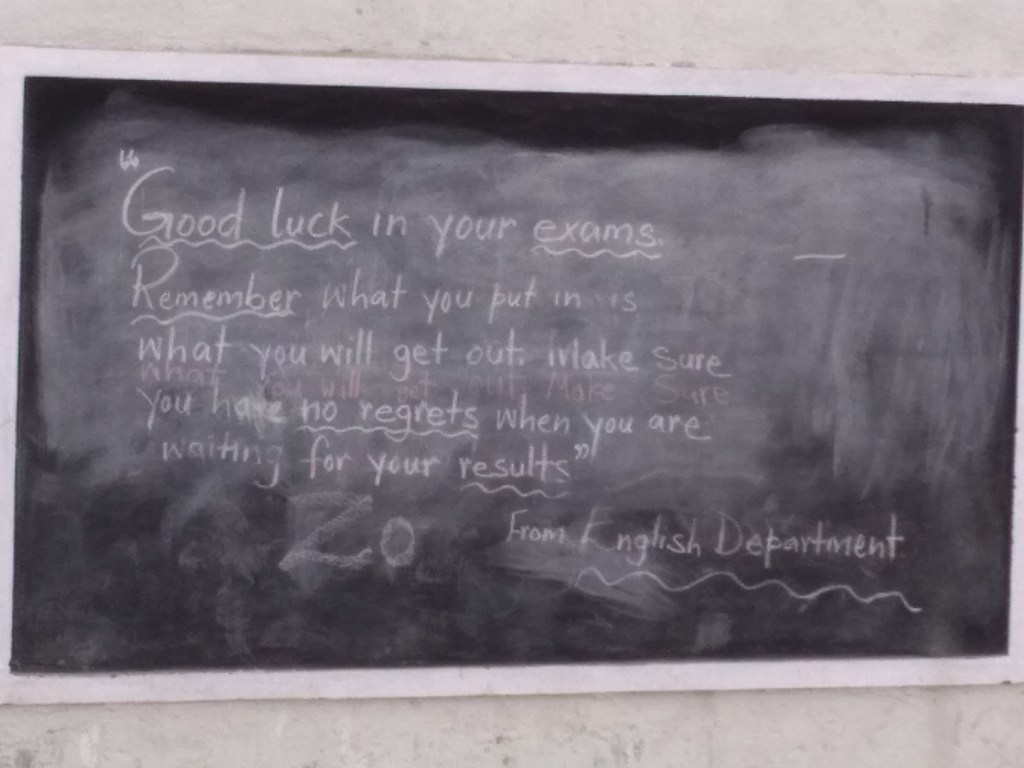 “Good luck in your exams.
Remember what you put in is
what you will get out. Make Sure
what you will get out Make Sure
you have no regrets when you are
waiting for your results”
Zo
From English Department